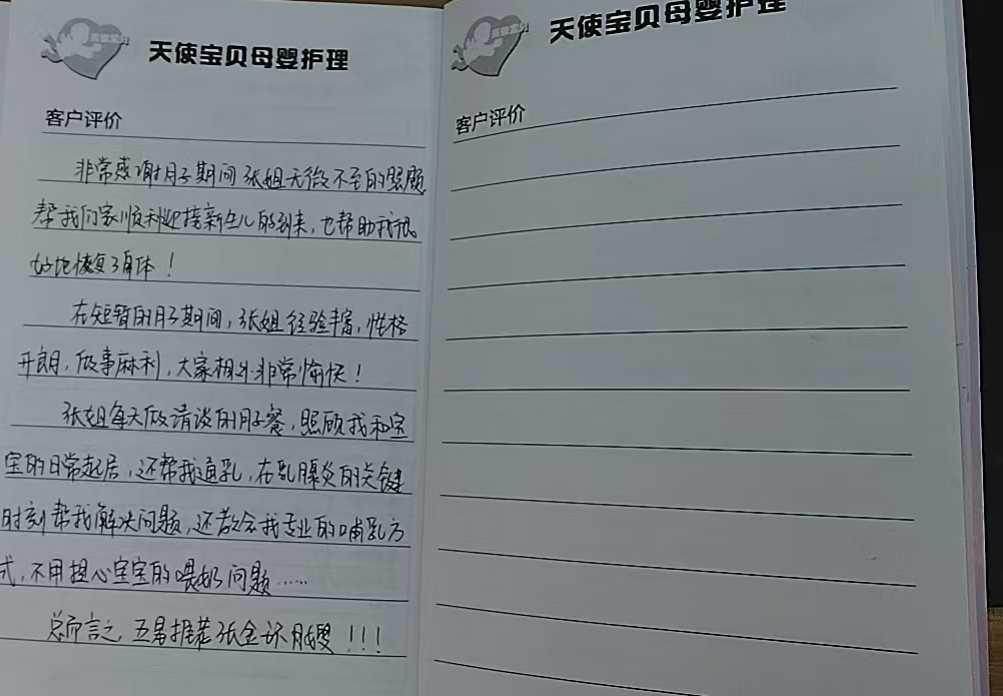 天使宝贝母婴护理
客户评价
非常感谢月子期间张姐无微不至的照顾
帮我们家顺利迎接新生儿的到来，也帮助我很
好地恢复了身体！
在短暂的月子期间，张姐经验丰富，性格
开朗，做事麻利，大家相处非常愉快！
张姐每天做清淡的月子餐，照顾我和宝
宝的日常起居，还帮我通乳，在乳腺炎的关键
时刻帮我解决问题，还教会我专业的哺乳方
式，不用担心宝宝的喂奶问题……
总而言之，五星推荐张金 月嫂！！！
天使宝贝母婴护理
客户评价